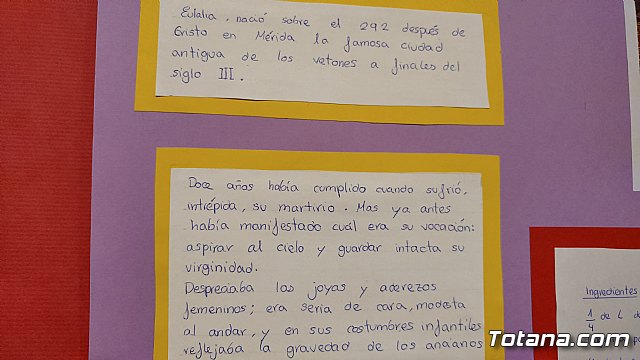 Eulalia, nació sobre el 292 después de
Cristo en Mérida la famosa ciudad
antigua de los vetones a finales del
siglo III.
Doce años había cumplido cuando sufrió,
intrépida, su martirio. Mas ya antes
había manifestado cuál era su vocación:
aspirar al cielo y guardar intacta su
virginidad.
Despreciaba las joyas y aderezos
femeninos; era seria de cara, modesta
al andar, y en sus costumbres infantiles
reflejaba la gravedad de los ancianos
Ingredientes
1/4 de L d
Totana.com